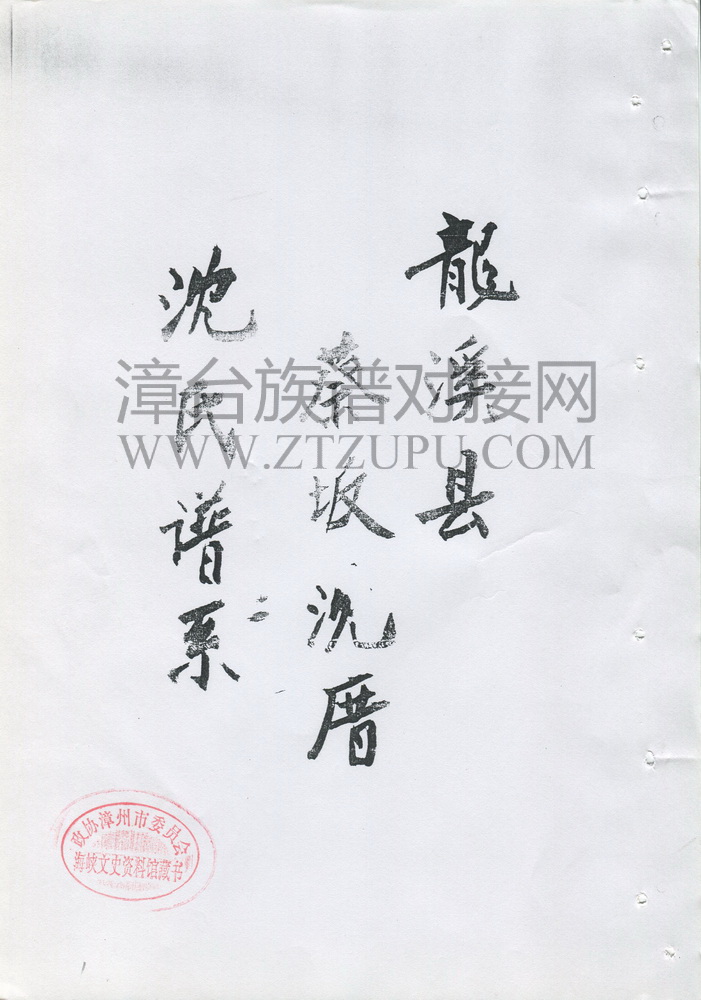 龍溪县
蔡坂沈厝
沈氏谱系
漳台族谱对接网
WWW.ZTZUPU.COM
政协漳州市委员会
海峡文史资料馆藏书